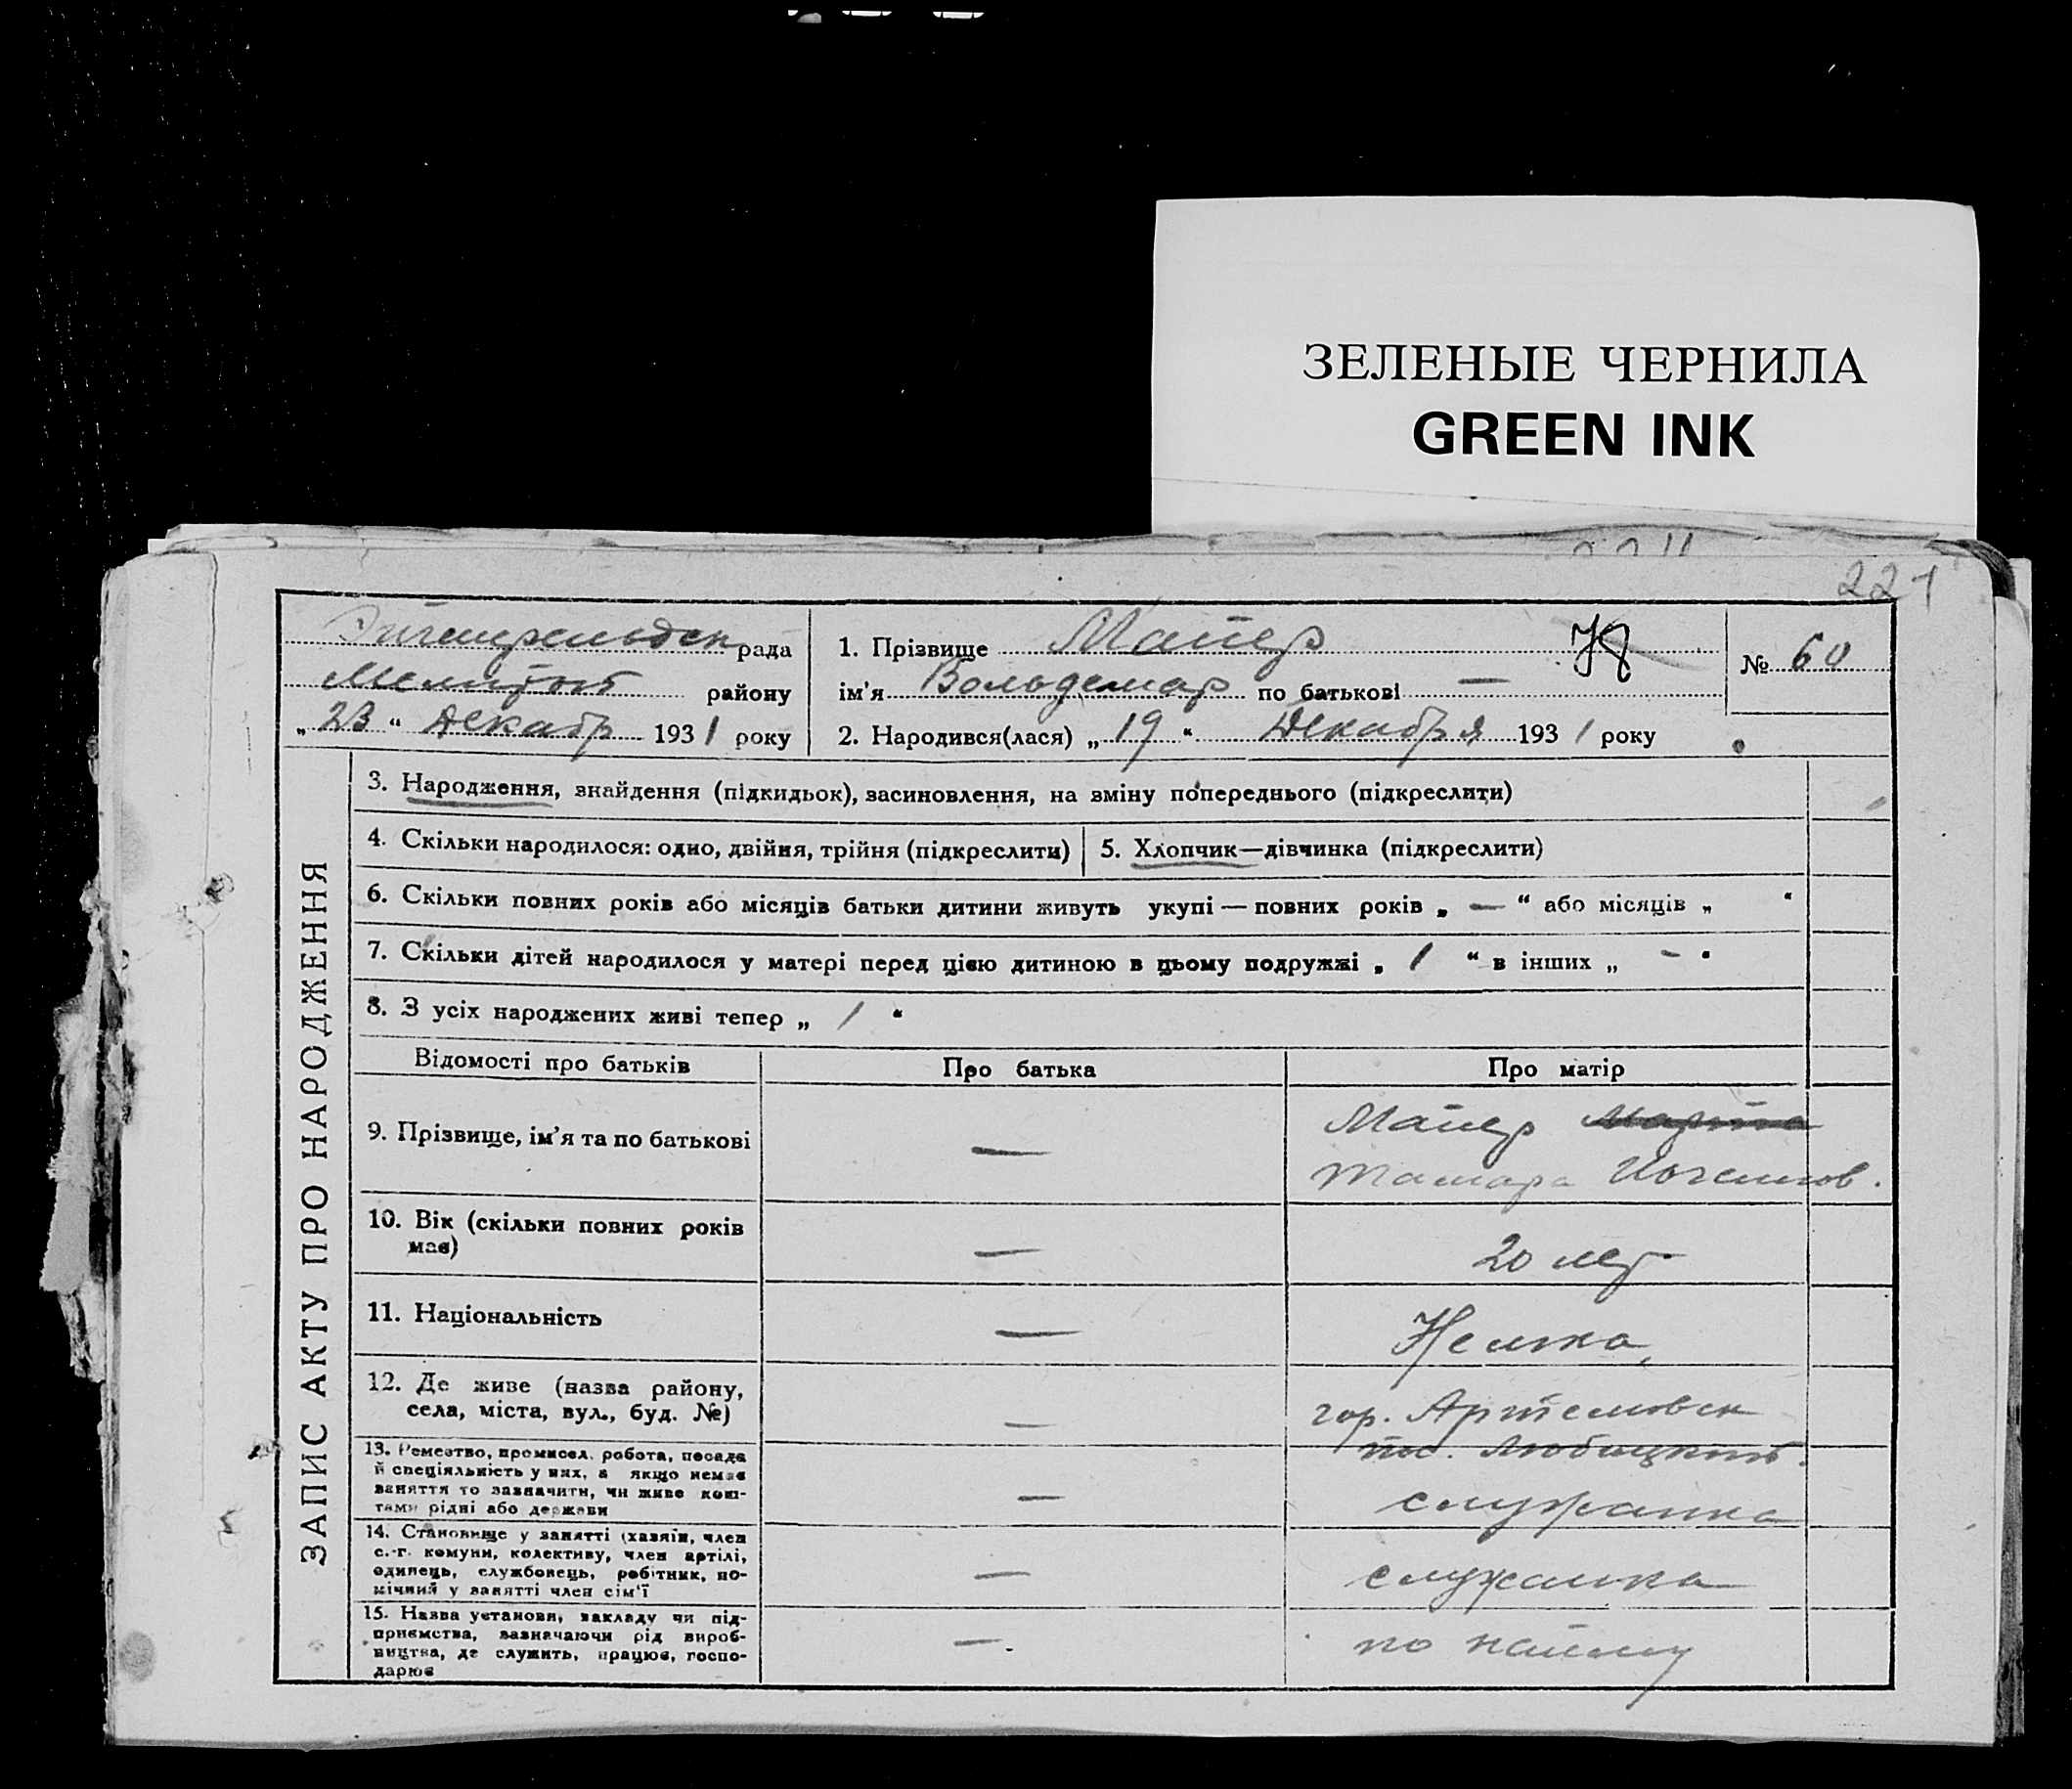 ЗЕЛЕНЫЕ ЧЕРНИЛА
GREEN INK
221
рада
району
„ 23 “ Декабр 1931 року
1. Прізвище Майер
ім'я Вольдемар по батькові —
2. Народився(лася) „ 19 “ Декабря 1931 року
№ 60
ЗАПИС АКТУ ПРО НАРОДЖЕННЯ
3. Народження, знайдення (підкидьок), засиновлення, на вміну попереднього (підкреслити)
4. Скільки народилося: одно, двійня, трійня (підкреслити)
5. Хлопчик—дівчинка (підкреслити)
6. Скільки повних років або місяців батьки дитини живуть укупі — повних років „ — “ або місяців „ “
7. Скільки дітей народилося у матері перед цією дитиною в цьому подружжі „ 1 “ в інших „ - “
8. З усіх народжених живі тепер „ 1 “
Відомості про батьків
Про батька
Про матір
9. Прізвище, ім'я та по батькові
—
Майер Марта
Тамара
10. Вік (скільки повних років
має)
—
20 лет
11. Національність
—
Немка
12. Де живе (назва району,
села, міста, вул., буд. №)
—
гор. Артемовск
пос.
13. Ремество, промисел. робота, посада
й спеціяльність у них, а якщо немає
заняття то зазначити, чи живе кош-
тами рідні або держави
—
служанка
14. Становище у занятті (хазяїн, член
с.-г. комуни, колективу, член артілі,
одинець, службовець, робітник, по-
мічний у занятті член сім'ї
—
служанка
15. Назва установи, закладу чи під-
приємства, зазначаючи рід вироб-
ництва, де служить, працює, госпо-
дарює
—
по найму